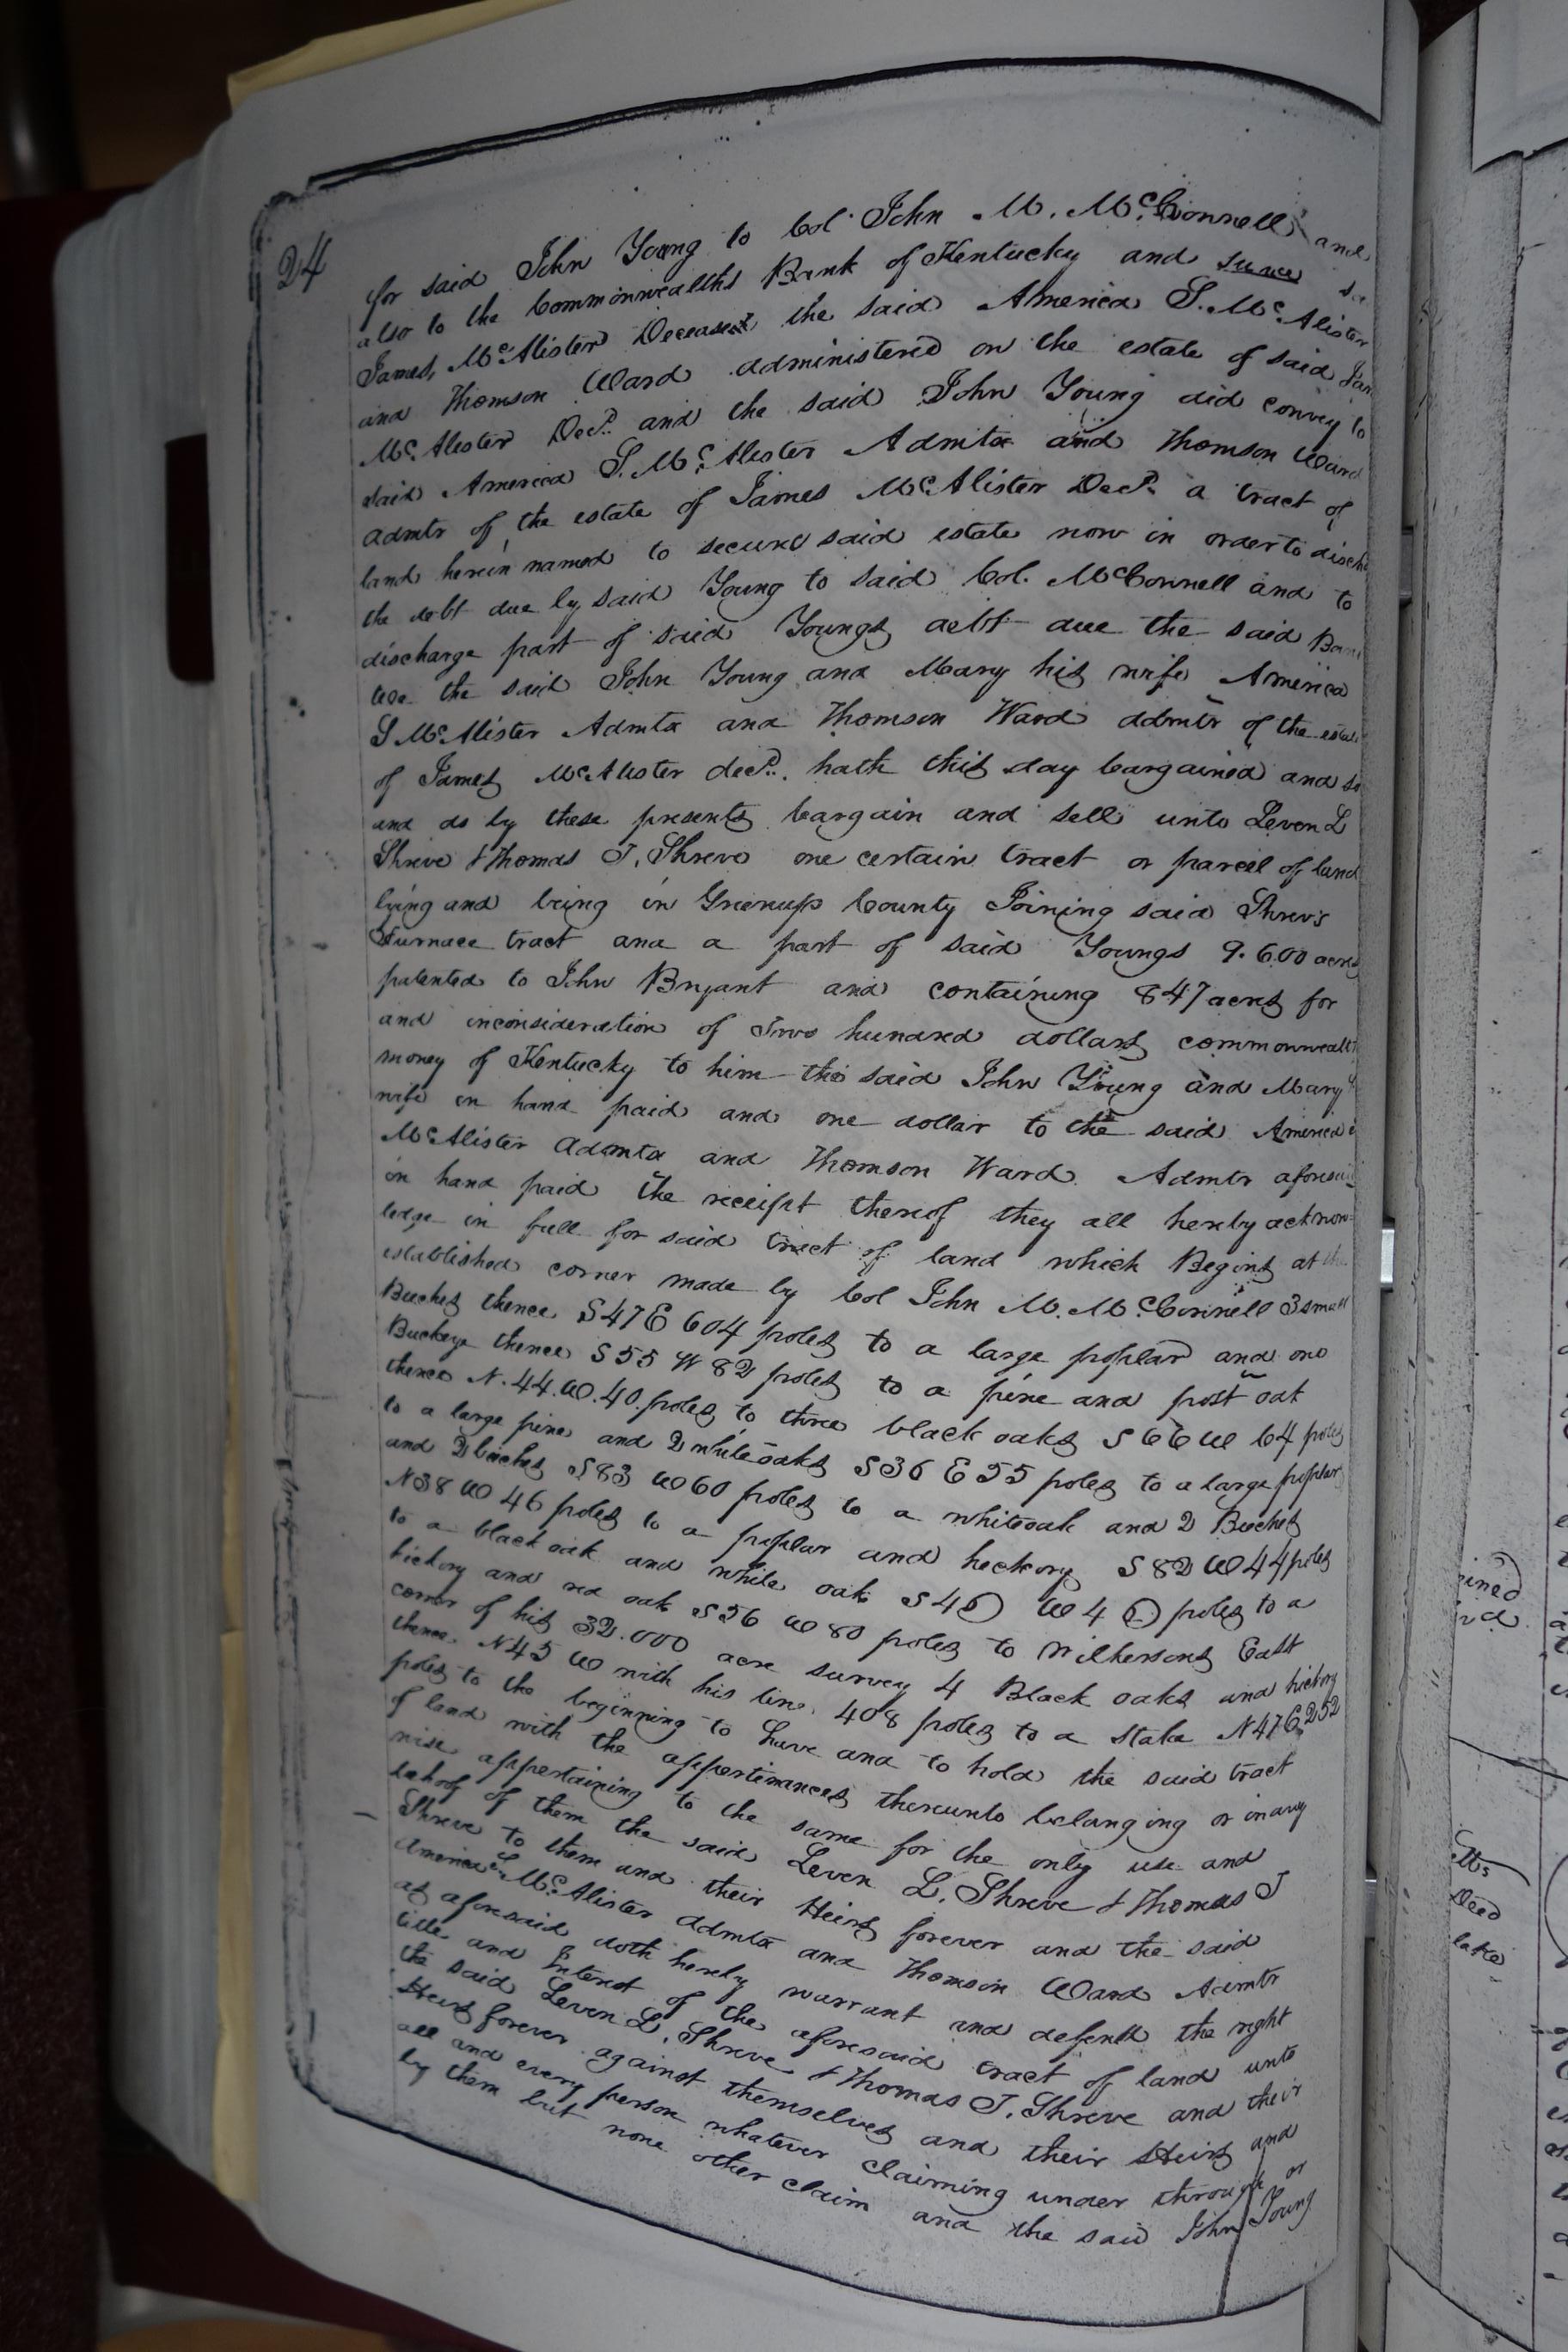 24
for said John Young to Col John M. McConnell and
also to the Commonwealths Bank of Kentucky and since sa
James McAlister Deceased the said America S. McAlister
and Thomson Ward administered on the estate of said Jam
McAlister Decd. and the said John Young did convey to
said America S. McAlister Admtx and Thomson Ward
admtr of the estate of James McAlister Decd. a tract of
land herein named to secure said estate now in order to disch
the debt due by said Young to said Col. McConnell and to
discharge part of said Youngs debt due the said Ban
we the said John Young and Mary his wife America
S McAlister Admtx and Thomson Ward admtr of the estate
of James McAlister decd. hath this day bargained and so
and do by these presents bargain and sell unto Leven L
Shreve & Thomas J. Shreve one certain tract or parcel of land
lying and being in Greenup County Joining said Shrevs
Furnace tract and a part of said Youngs 9.600 acres
patented to John Bryant and containing 847 acres for
and inconsideration of Two hundred dollars commonwealth
money of Kentucky to him the said John Young and Mary
wife in hand paid and one dollar to the said America
McAlister admtx and Thomson Ward Admtr aforesaid
in hand paid the receipt thereof they all hereby acknow
ledge in full for said tract of land which Begins at the
established corner made by Col John M. McConnell 3 small
Buches thence S47E 604 poles to a large poplar and one
Buckeye thence S55 W 82 poles to a pine and post oak
thence N.44.W.40.poles to three black oaks S66W 64 poles
to a large pine and 2 white oaks S36 E55 poles to a large poplar
and 2 beches S83 W60 poles to a whiteoak and 2 Buches
N38 W 46 poles to a poplar and heckory S82 W44 poles
to a black oak and white oak S40 W 40 poles to a
hickory and red oak S56 W80 poles to Wilkersons East
corner of his 32.000 acre survey 4 Black oaks and hickory
thence N45 W with his line 408 poles to a Stake N47E 252
poles to the beginning to have and to hold the said tract
of land with the appertinances thereunto belonging or inany
wise appertaining to the same for the only use and
behoof of them the said Leven L. Shreve & Thomas J
Shreve to them and their Heirs forever and the said
America S McAlister admtx and Thomson Ward Admtr
as aforesaid doth hereby warrant and defend the right
title and Interest of the aforesaid tract of land unto
the said Leven L. Shreve & Thomas J. Shreve and their
Heirs forever against themselves and their Heirs and
all and every person whatever claiming under through or
by them but none other claim and the said John Young
ined
Deed
lake